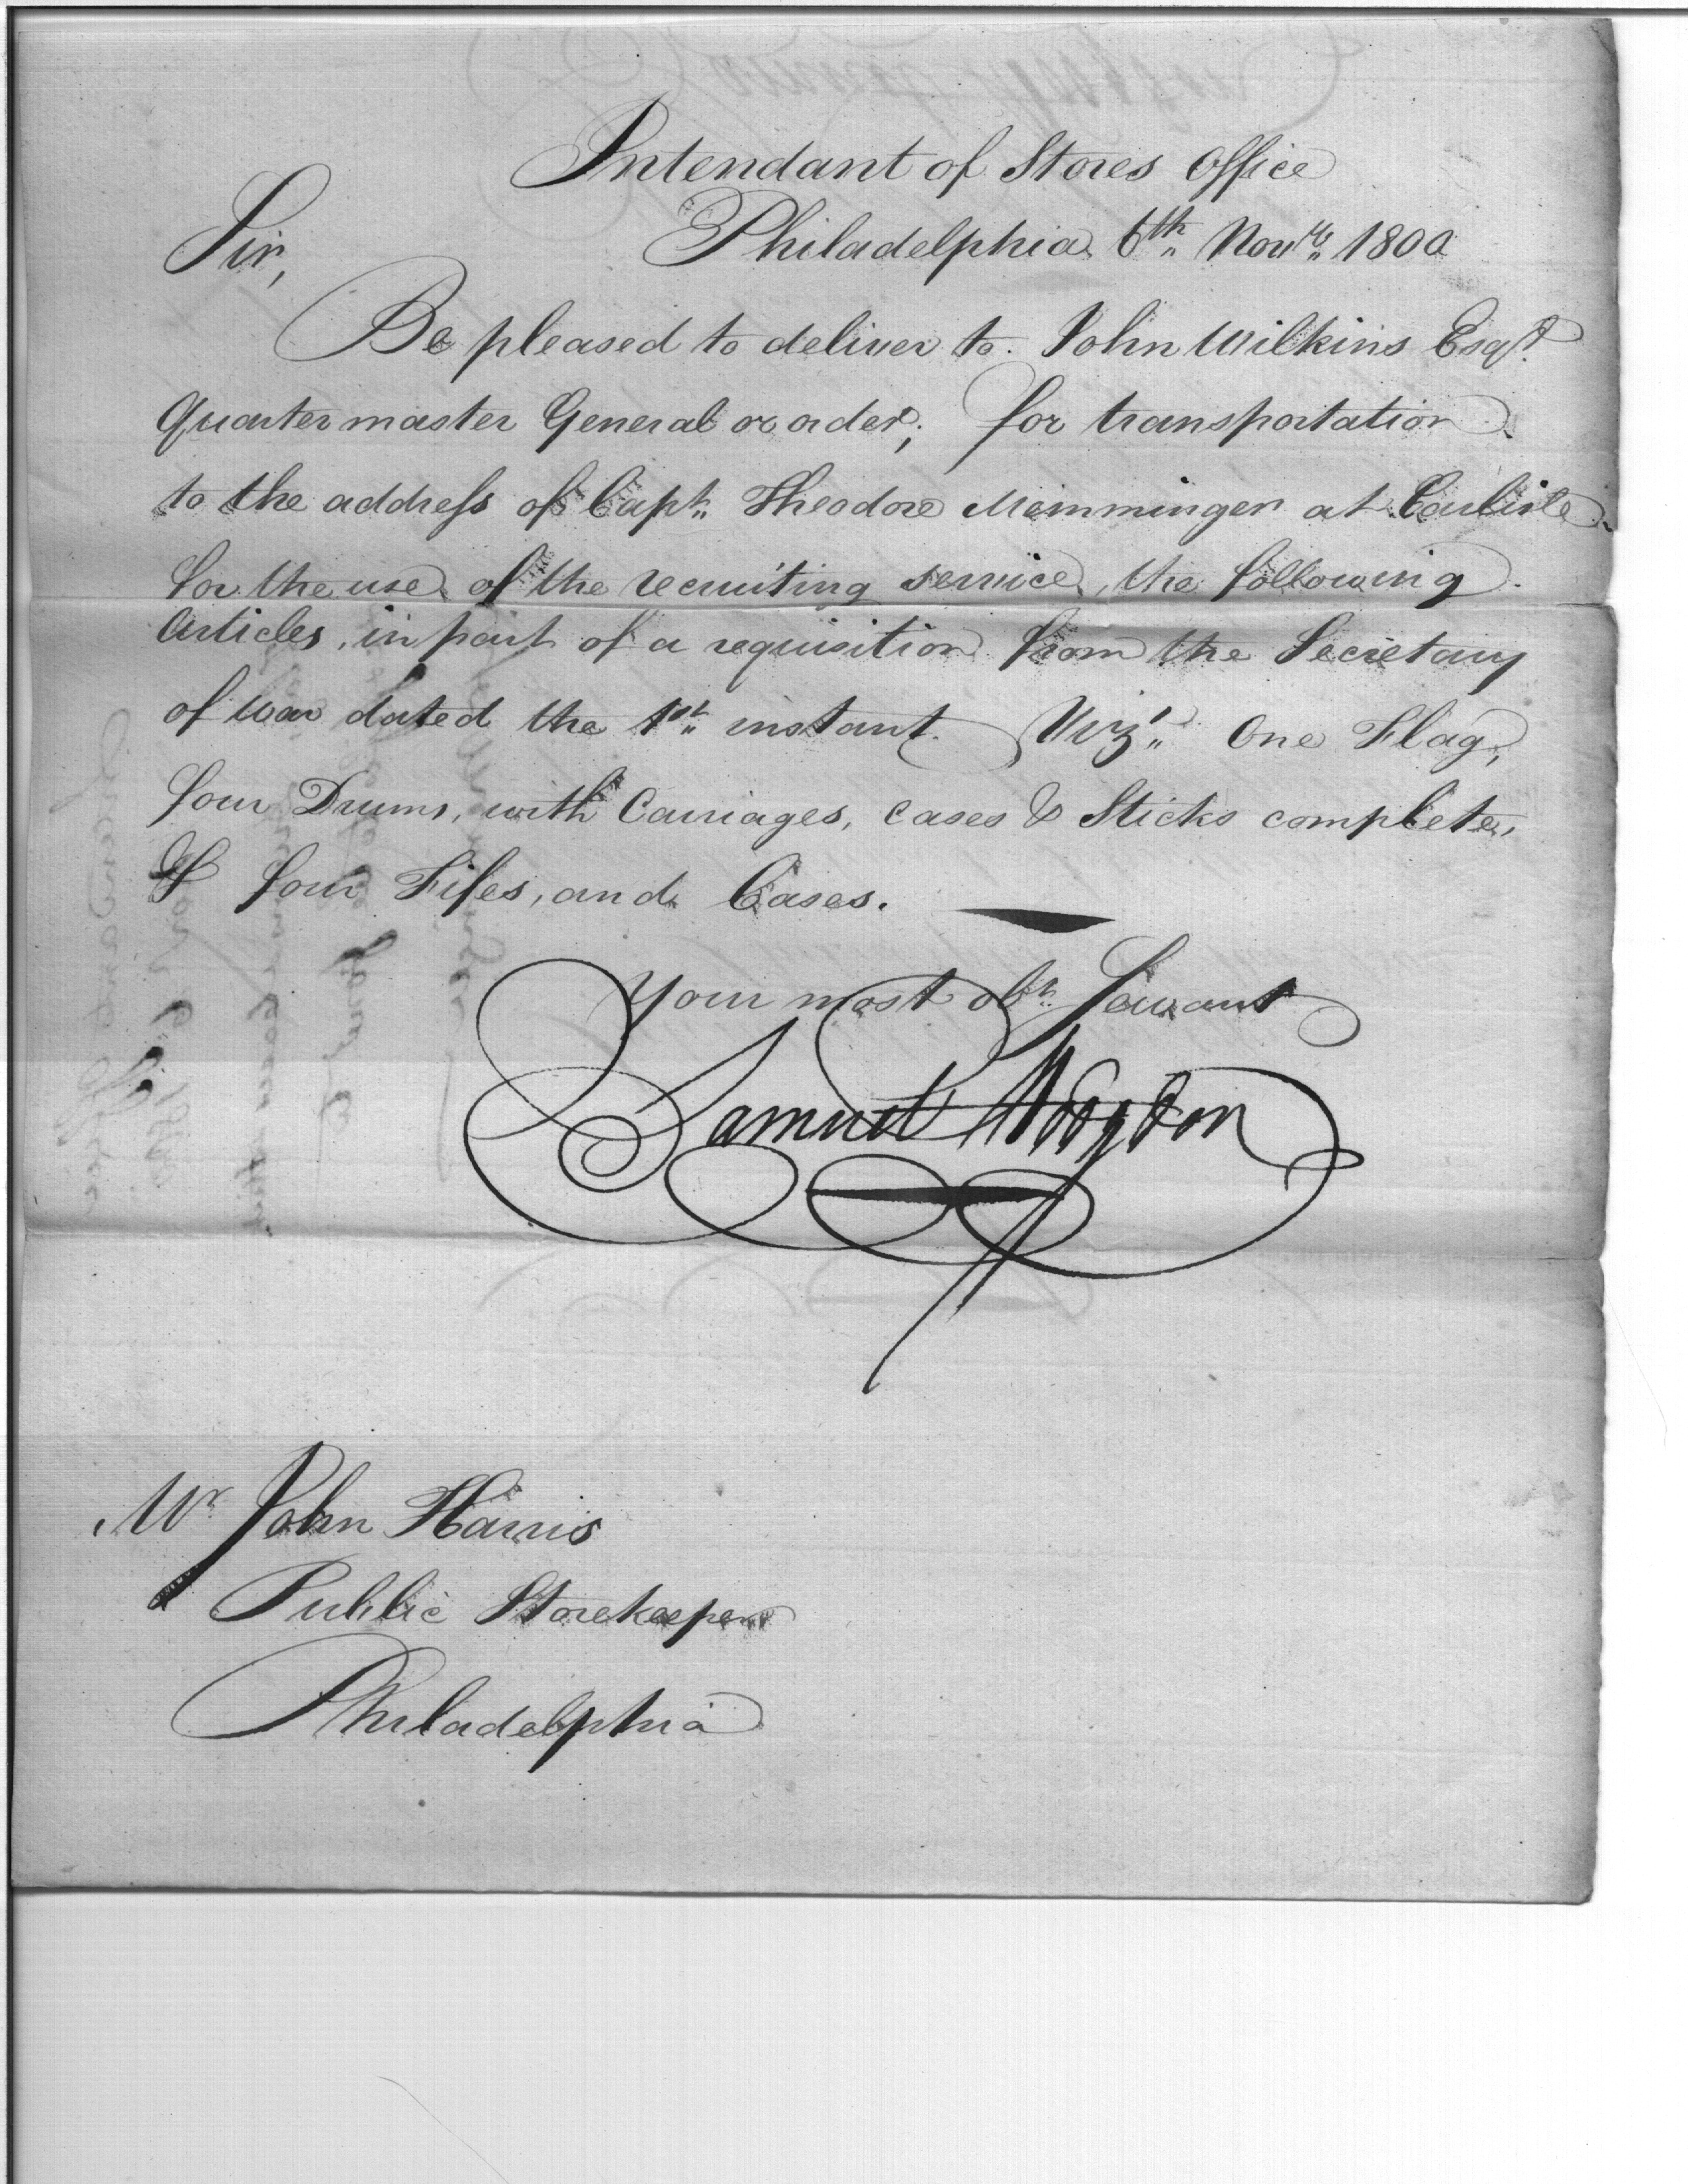 Intendant of Stores Office
Philadelphia 6th Novr. 1800
Sir,
Be pleased to deliver to John Wilkins Esqr.
Quarter master General or order, for transportation
to the address of Capt. Theodore Memminger at Carlisle
for the use of the recruiting service, the following
Articles, in part of a requisition from the Secretary
of War dated the 1st instant. Vizt. One Flag,
four Drums, with Carriages, Cases & Sticks complete,
& four Fifes, and Cases.
Your most obt. Servant
Samuel Hodgdon
Mr John Harris
Public Storekeeper
Philadelphia